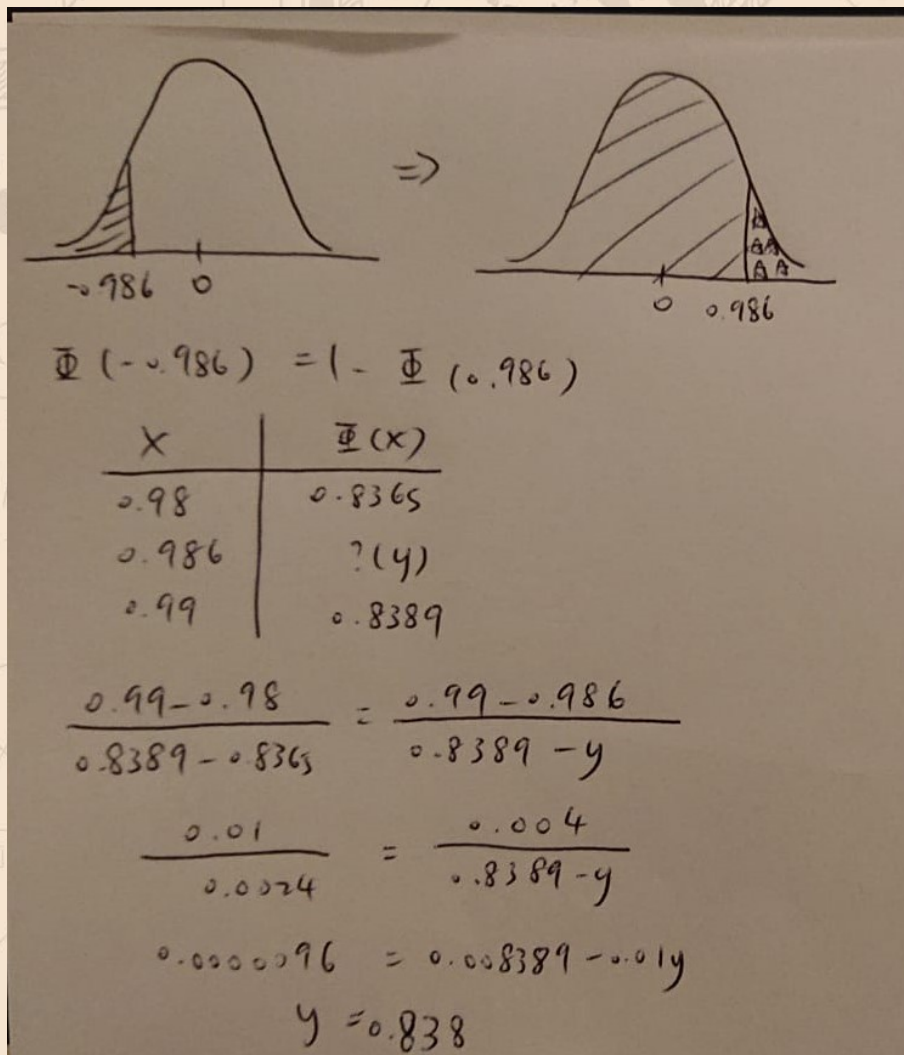 ⇒
-0.986 0
0 0.986
Φ (-0.986) = 1 - Φ (0.986)
X Φ(X)
0.98 0.8365
0.986 ?(y)
0.99 0.8389
0.99-0.98 / 0.8389-0.8365 = 0.99-0.986 / 0.8389-y
0.01 / 0.0024 = 0.004 / 0.8389-y
0.0000096 = 0.008389-0.01y
y = 0.838